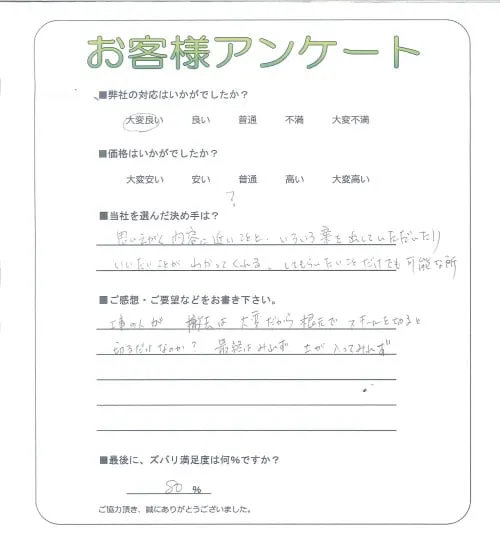 お客様アンケート
■弊社の対応はいかがでしたか？
大変良い 良い 普通 不満 大変不満
■価格はいかがでしたか？
大変安い 安い 普通 高い 大変高い
?
■当社を選んだ決め手は？
思いえがく内容に近いことと、いろいろ案を出していただいたり
いいたいことがわかってくれる。してもらいたいことだけでも可能な所
■ご感想・ご要望などをお書き下さい。
工事の人が 撤去は大変だから根元で を切ると
切るだけなのか？ 最終はみれず 土が入ってみれず
■最後に、ズバリ満足度は何％ですか？
80 %
ご協力頂き、誠にありがとうございました。